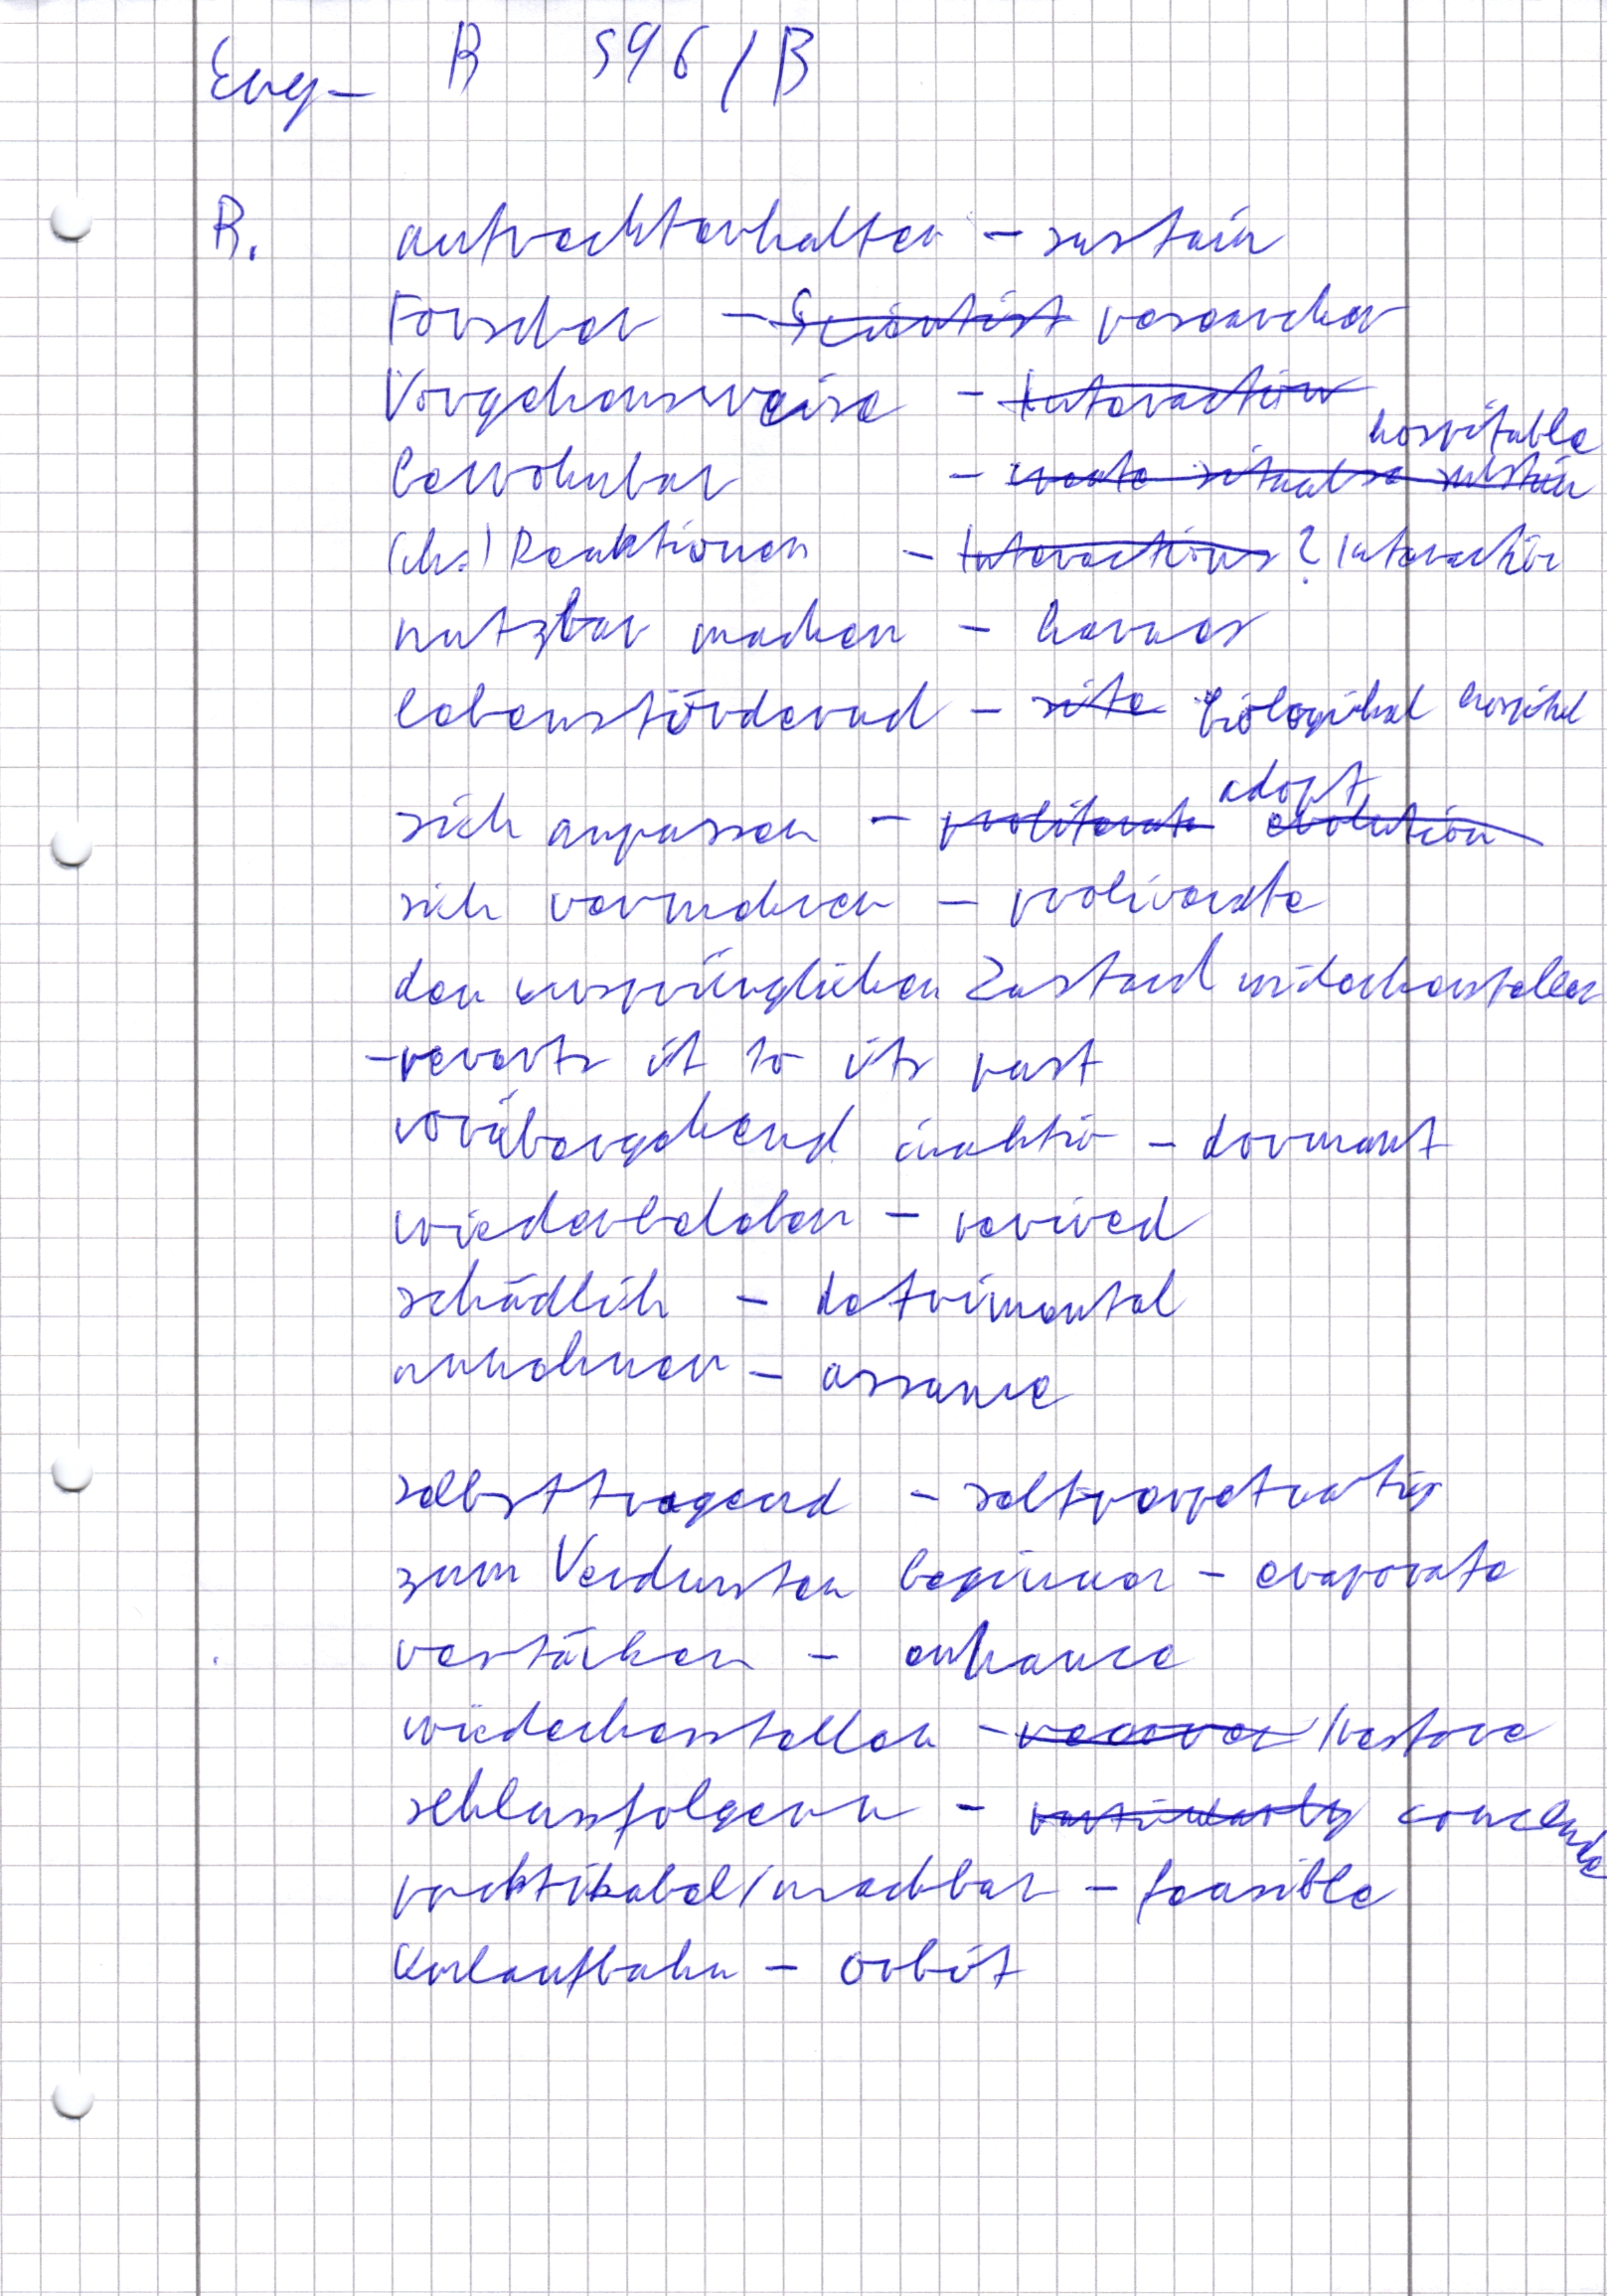 Eng- B S96/B
B. aufrechterhalten - sustain
Forscher - Scientist researcher
Vorgehensweise - Interaction
hospitable
bewohnbar -
(ch.) Reaktionen - Interactions? Interaction
nutzbar machen -
lebensfördernd - site biological
adopt
sich anpassen - proliferate evolution
sich vermehren -
den ursprünglichen Zustand widerherstellen
- reverts it to its past
vorübergehend inaktiv - dormant
wiederbeleben - revived
schädlich - detrimental
annehmen - assume
selbsttragend -
zum Verdunsten beginnen - evaporate
verstärken - enhance
wiederherstellen - recover /restore
schlussfolgern - particularly conclude
praktikabel/machbar - feasible
Umlaufbahn - orbit